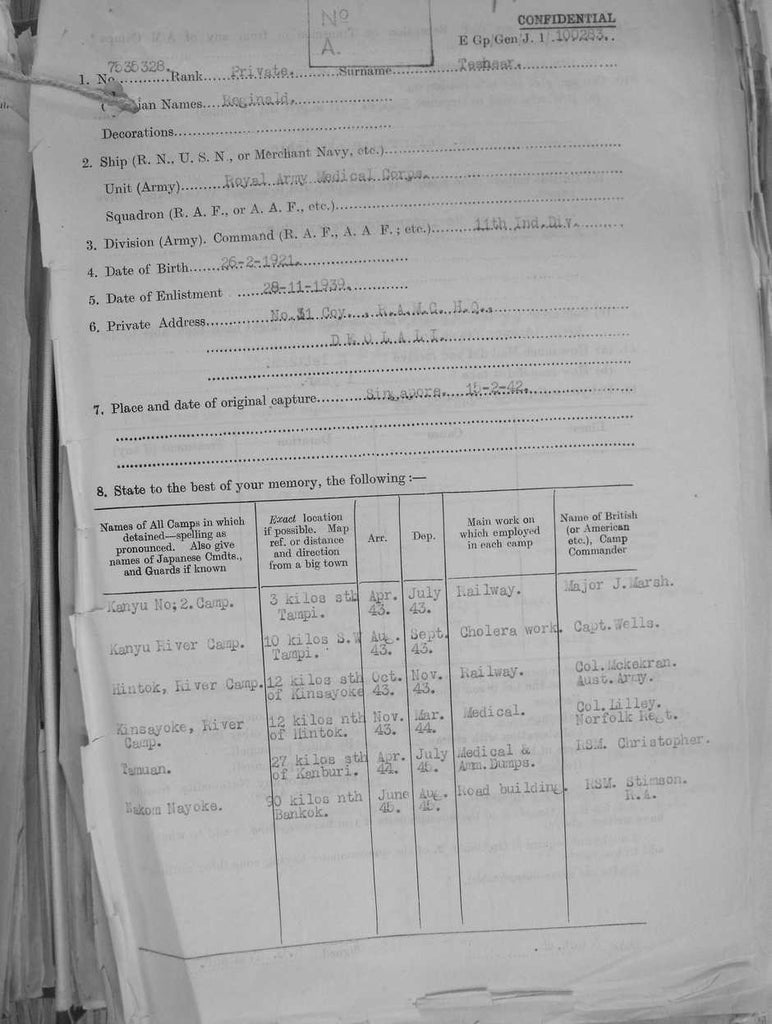 No
A.
CONFIDENTIAL
E Gp/Gen J. 1 100283.
1. No. 7535328. Rank Private. Surname
ian Names Reginald.
Decorations
2. Ship (R. N., U. S. N., or Merchant Navy, etc.)
Unit (Army) Royal Army Medical Corps.
Squadron (R. A. F., or A. A. F., etc.)
3. Division (Army). Command (R. A. F., A. A F. ; etc.) 11th Ind.Div.
4. Date of Birth 26-2-1921.
5. Date of Enlistment 28-11-1939.
6. Private Address No.31 Coy., R.A.M.C. H.Q.,
D.E.O.L.A.L.I.
7. Place and date of original capture Singapore. 15-2-42.
8. State to the best of your memory, the following :—
Names of All Camps in which detained—spelling as pronounced. Also give names of Japanese Cmdts., and Guards if known
Exact location if possible. Map ref. or distance and direction from a big town
Arr.
Dep.
Main work on which employed in each camp
Name of British (or American etc.), Camp Commander
Kanyu No; 2. Camp. 3 kilos sth Tampi. Apr. 43. July 43. Railway. Major J.Marsh.
Kanyu River Camp. 10 kilos S.W Tampi. Aug. 43. Sept. 43. Cholera work. Capt. Wells.
Hintok, River Camp. 12 kilos sth of Kinsayoke Oct. 43. Nov. 43. Railway. Col. Mckekran. Aust. Army.
Kinsayoke, River Camp. 12 kilos nth of Hintok. Nov. 43. Mar. 44. Medical. Col. Lilley. Norfolk Regt.
Tamuan. 27 kilos sth of Kanburi. Apr. 44. July 45. Medical & Amm. Dumps. RSM. Christopher.
Nakom Nayoke. 90 kilos nth Bankok. June 45. Aug. 45. Road building. RSM. Stimson. R.A.